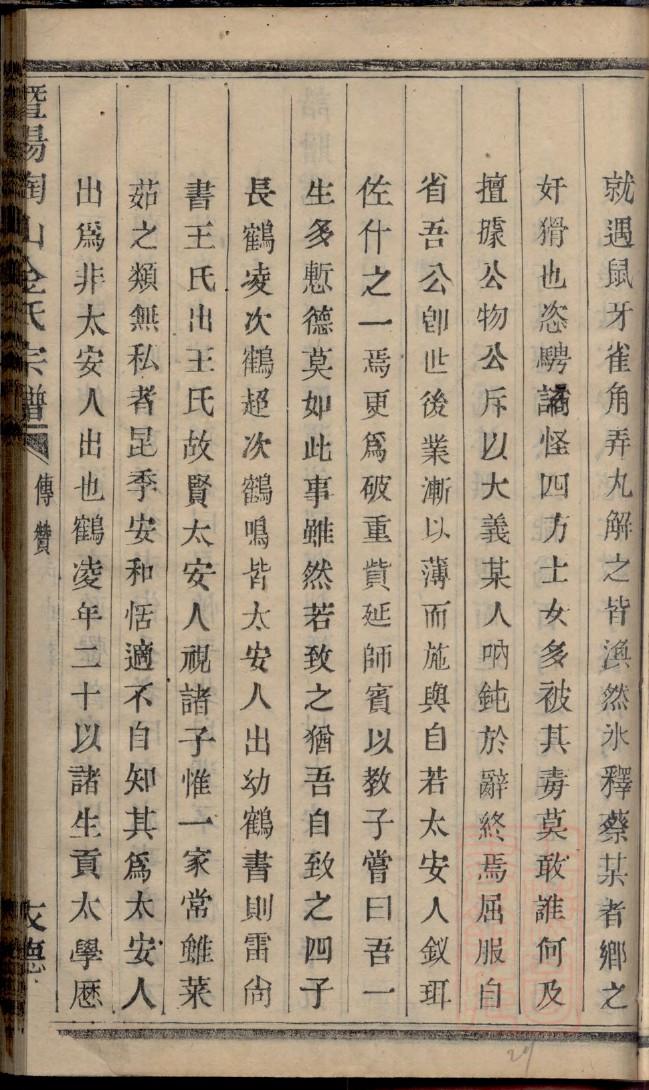 就遇鼠牙雀角弄丸解之皆渙然氷釋蔡某者鄉之
奸猾也恣騁譎怪四方士女多被其毒莫敢誰何及
擅據公物公斥以大義某人吶鈍於辭終焉屈服自
省吾公卽世後業漸以薄而施與自若太安人釵珥
佐什之一焉更爲破重貲延師賓以教子嘗曰吾一
生多慙德莫如此事雖然若致之猶吾自致之四子
長鶴凌次鶴超次鶴鳴皆太安人出幼鶴書則雷尙
書王氏出王氏故賢太安人視諸子惟一家常鮭菜
茹之類無私者昆季安和恬適不自知其爲太安人
出爲非太安人出也鶴凌年二十以諸生貢太學歷
暨陽陶山金氏宗譜 傳贊 友德